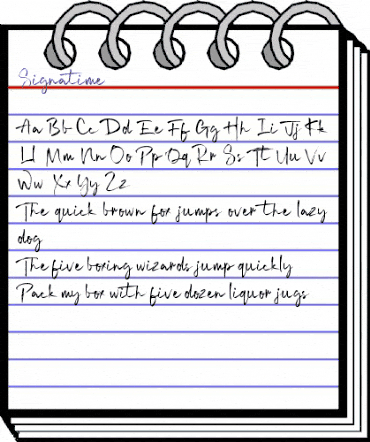 Signatime
Aa Bb Cc Dd Ee Ff Gg Hh Ii Jj Kk
Ll Mm Nn Oo Pp Qq Rr Ss Tt Uu Vv
Ww Xx Yy Zz
The quick brown fox jumps over the lazy
dog
The five boxing wizards jump quickly
Pack my box with five dozen liquor jugs